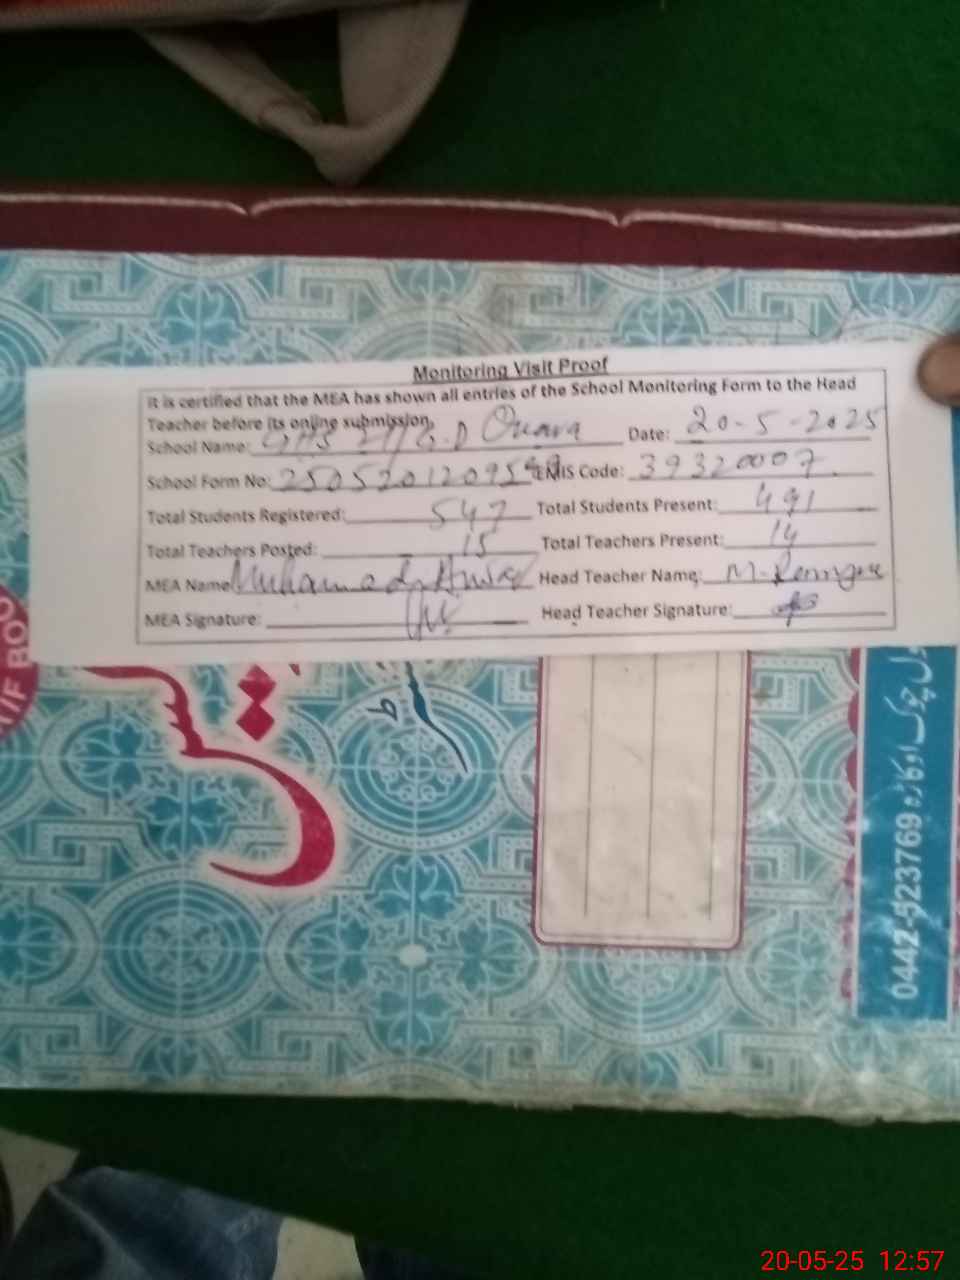 Monitoring Visit Proof
It is certified that the MEA has shown all entries of the School Monitoring Form to the Head
Teacher before its online submission.
School Name: GHS G.D Date: 20-5-2025
School Form No: EMIS Code: 39320007
Total Students Registered: 547 Total Students Present: 491
Total Teachers Posted: 15 Total Teachers Present: 14
MEA Name: Muhamad Head Teacher Name: M.
MEA Signature: Head Teacher Signature:
0442-523769
چوک اوکاڑہ
20-05-25 12:57